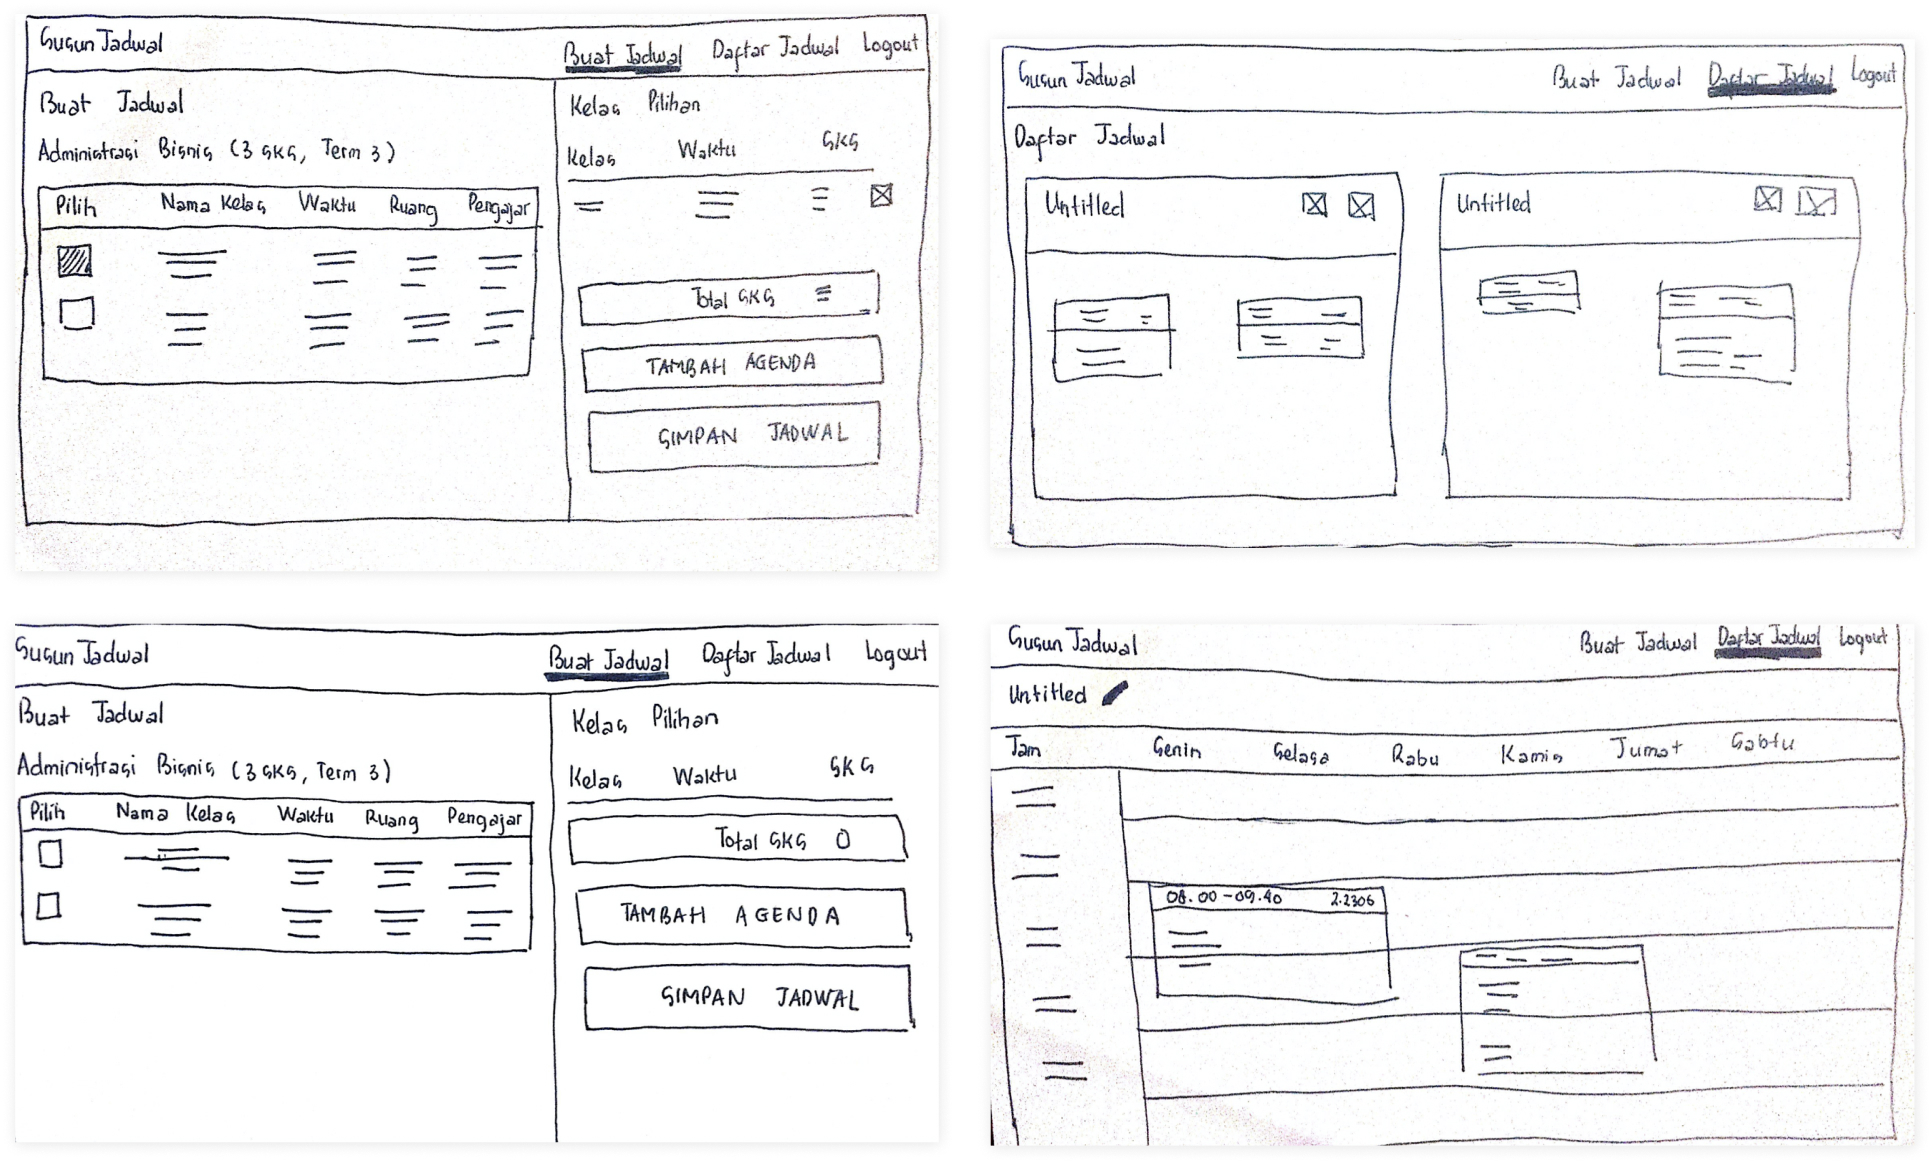 Susun Jadwal
Buat Jadwal Daftar Jadwal Logout
Buat Jadwal
Administrasi Bisnis (3 SKS, Term 3)
Pilih Nama Kelas Waktu Ruang Pengajar
Kelas Pilihan
Kelas Waktu SKS
Total SKS
TAMBAH AGENDA
SIMPAN JADWAL
Susun Jadwal
Buat Jadwal Daftar Jadwal Logout
Daftar Jadwal
Untitled
Untitled
Susun Jadwal
Buat Jadwal Daftar Jadwal Logout
Buat Jadwal
Administrasi Bisnis (3 SKS, Term 3)
Pilih Nama Kelas Waktu Ruang Pengajar
Kelas Pilihan
Kelas Waktu SKS
Total SKS 0
TAMBAH AGENDA
SIMPAN JADWAL
Susun Jadwal
Buat Jadwal Daftar Jadwal Logout
Untitled
Jam Senin Selasa Rabu Kamis Jumat Sabtu
08.00-09.40 2.2306